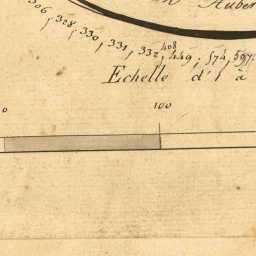 Auber
306, 328, 330, 331, 332, 408, 449, 574, 597.
Echelle d'1 à
0 100